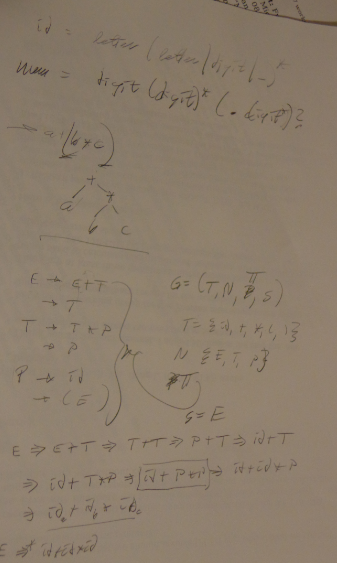 id = letter (letter | digit | _)*
num = digit (digit)* (. digit)?
→ a + (b * c)
+
a *
b c
E → E+T
→ T
T → T * P
→ P
P → id
→ (E)
G = (T, N, Π, S)
T = {id, +, *, (, )}
N {E, T, P}
Π
S = E
E ⇒ E+T ⇒ T+T ⇒ P+T ⇒ id+T
⇒ id + T*P ⇒ id + P*P ⇒ id+id*P
⇒ id_a + id_b * id_c
E ⇒* id+id*id